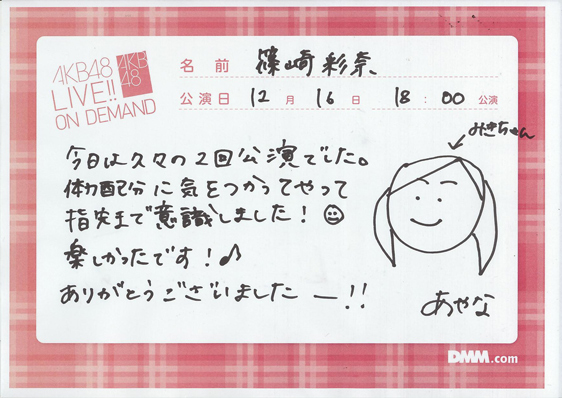 AKB48
LIVE!!
ON DEMAND
AKB
48
名 前 篠崎彩奈
公演日 12 月 16 日 18 : 00 公演
みきちゃん
今日は久々の2回公演でした。
体力配分に気をつかってやって
指先まで意識しました!
楽しかったです!♪
ありがとうございましたー!!
あやな
DMM.com